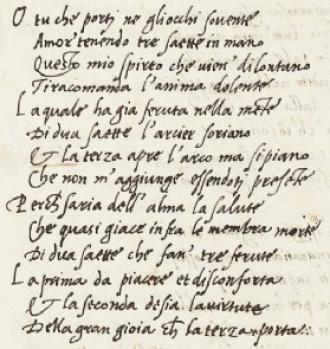 O tu che portj ne gliocchi souente
Amor tenendo tre saette in mano
Questo mio spirto che uien dilontano
Tiracomanda l'anima dolente
Laquale ha gia feruta nella mẽte
Di dua saette l'arcier soriano
& la terza apre l'arco ma sipiano
Che non m'aggiunge essendotj presẽte
Perch̃ saria dell'alma la salute
Che quasi giace infra le membra morte
Di dua saette che fan' tre ferute
La prima da piacere et disconforta
& la seconda desia lauirtute
Della gran gioia ch̃ la terza porta.